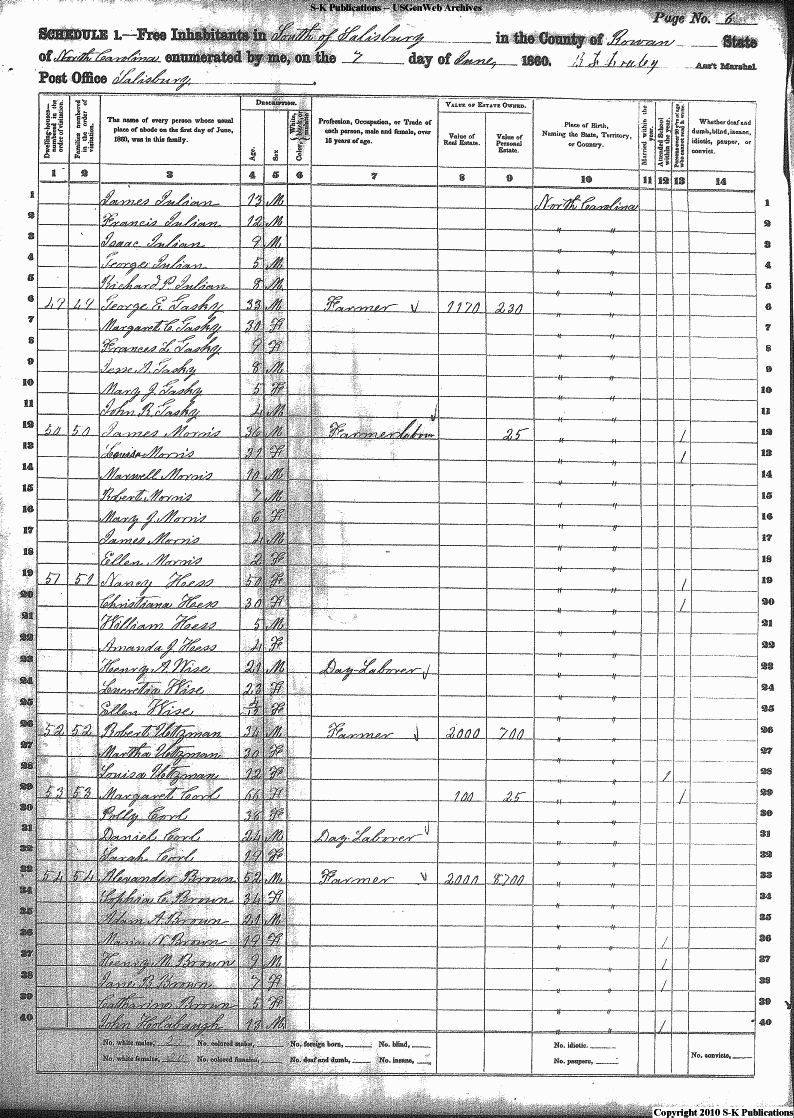 S-K Publications -- USGenWeb Archives
Page No. 6
SCHEDULE 1.—Free Inhabitants in South of Salisbury in the County of Rowan State
of North Carolina enumerated by me, on the 7 day of June, 1860. Ass't Marshal
Post Office Salisbury
Dwelling-houses—numbered in the order of visitation.
Families numbered in the order of visitation.
The name of every person whose usual place of abode on the first day of June, 1860, was in this family.
DESCRIPTION.
Age.
Sex.
Color, White, black, or mulatto.
Profession, Occupation, or Trade of each person, male and female, over 15 years of age.
VALUE OF ESTATE OWNED.
Value of Real Estate.
Value of Personal Estate.
Place of Birth, Naming the State, Territory, or Country.
Married within the year.
Attended School within the year.
Persons over 20 y'rs of age who cannot read & write.
Whether deaf and dumb, blind, insane, idiotic, pauper, or convict.
1 2 3 4 5 6 7 8 9 10 11 12 13 14
1 James Julian 13 M North Carolina 1
2 Francis Julian 12 M " " 2
3 Isaac Julian 9 M " " 3
4 George Julian 5 M " " 4
5 Richard P Julian 8 M " " 5
6 George E. Gashy 33 M Farmer 1170 230 " " 6
7 Margaret C. Gashy 30 F " " 7
8 Frances L. Gashy 9 F " " 8
9 Jesse A. Gashy 8 M " " 9
10 Mary J. Gashy 5 F " " 10
11 John R. Gashy 4 M " " 11
12 50 50 James Morris 36 M Farmer labour 25 " " / 12
13 Louisa Morris 31 F " " / 13
14 Maxwell Morris 10 M " " 14
15 Robert Morris 7 M " " 15
16 Mary J. Morris 6 F " " 16
17 James Morris 4 M " " 17
18 Ellen Morris 2 F " " 18
19 51 51 Nancy Hess 50 F " " / 19
20 Christiana Hess 30 F " " / 20
21 William Hess 5 M " " 21
22 Amanda J. Hess 4 F " " 22
23 Henry A. Wise 21 M Day-Laborer " " 23
24 Lucretia Wise 23 F " " 24
25 Ellen Wise 4/12 F " " 25
26 52 52 Robert Utzman 34 M Farmer 2000 700 " " 26
27 Martha Utzman 30 F " " 27
28 Louisa Utzman 12 F " " / 28
29 53 53 Margaret Corl 66 F 100 25 " " / 29
30 Polly Corl 36 F " " 30
31 Daniel Corl 24 M Day-Laborer " " 31
32 Sarah Corl 19 F " " 32
33 54 54 Alexander Brown 52 M Farmer 2000 8700 " " 33
34 Sophia C. Brown 34 F " " 34
35 Adam A. Brown 21 M " " 35
36 Maria N. Brown 19 F " " / 36
37 Henry M. Brown 9 M " " / 37
38 Jane B. Brown 7 F " " / 38
39 Catharine Brown 5 F " " 39
40 John Holabaugh 18 M " " / 40
No. white males, No. colored males, No. foreign born, No. blind, No. idiotic,
No. white females, No. colored females, No. deaf and dumb, No. insane, No. paupers, No. convicts,
Copyright 2010 S-K Publications